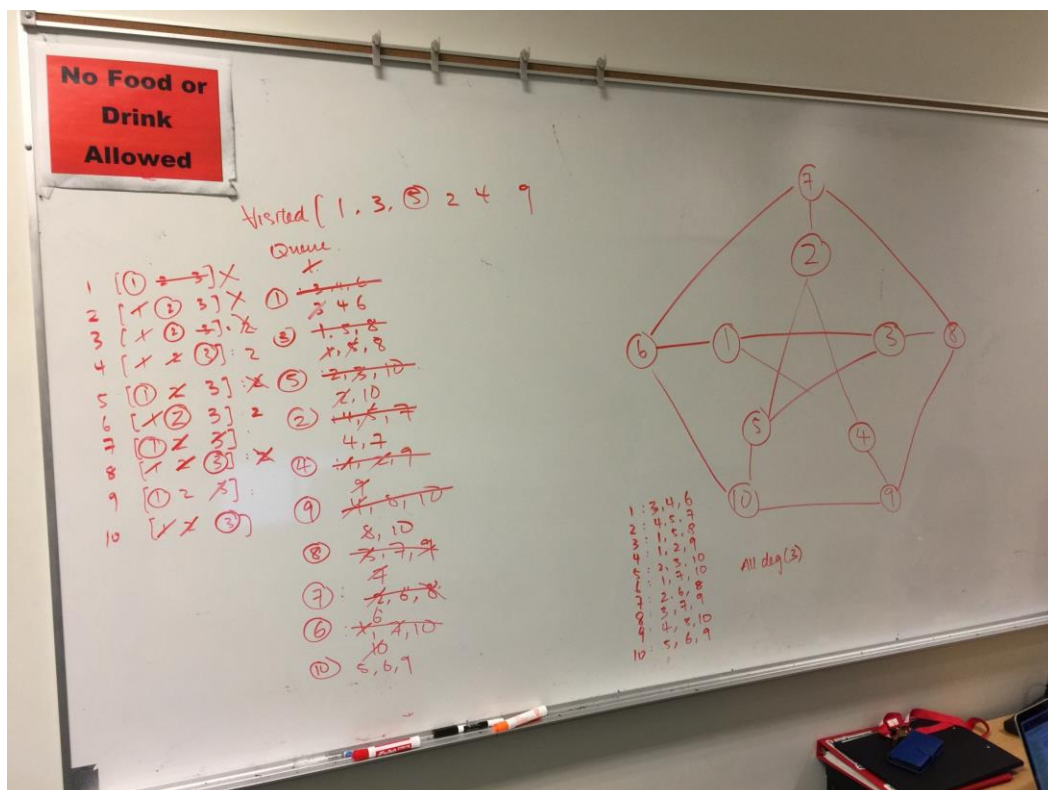 No Food or
Drink
Allowed
Visited [ 1, 3, 5 2 4 9
Queue
1 [1 2 3]
2 [1 2 3]
3 [1 2 3]: 2
4 [1 2 3]: 2
5 [1 2 3]: 2
6 [1 2 3] 2
7 [1 2 3]:
8 [1 2 3]: 2
9 [1 2 3]:
10 [1 2 3]
1
1 3, 4, 6
3 4 6
3 1, 5, 8
1, 5, 8
5 2, 3, 10
2, 10
2 4, 5, 7
4, 7
4 1, 2, 9
9
9 4, 8, 10
8, 10
8 3, 7, 9
7
7: 2, 6, 8
6
6: 1, 7, 10
10
10 5, 6, 9
7
2
6
1
3
8
5
4
10
9
1: 3, 4, 6
2: 4, 5, 7
3: 1, 5, 8
4: 1, 2, 9
5: 2, 3, 10
6: 1, 7, 10
7: 2, 6, 8
8: 3, 7, 9
9: 4, 8, 10
10: 5, 6, 9
All deg(3)